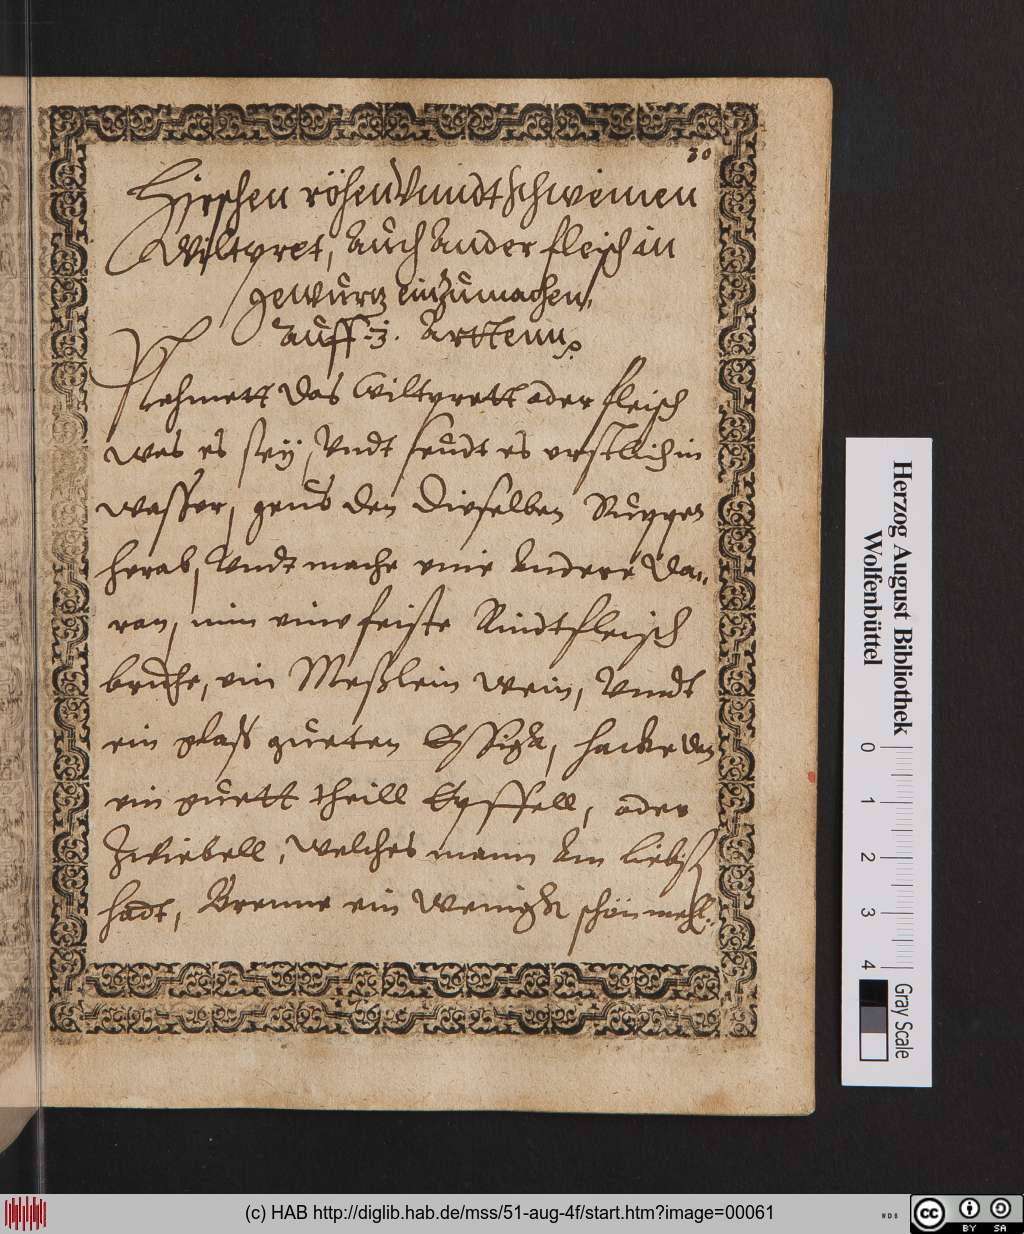 30
Hirschen röhen Vnndt schweinen
Wiltpret, Auch Ander fleisch in
gewurtz einzumachen,
Auff .3. Artten
Nehmett das Wiltprett oder fleisch
was es sey, Vndt seudt es erstlich in
wasser, geus den dieselben Suppen
herab, Vndt mache eine Andere Da„
ran, nim eine feiste Rindtfleisch
bruhe, ein Meßlein wein, Vnndt
ein glaß gueten Essigk, hacke den
ein guett theill Epffell, oder
Zwiebell, welches mann Am liebst
hadt, Brenne ein Wenigk schön mehl
Herzog August Bibliothek
Wolfenbüttel
0 1 2 3 4
Gray Scale
(c) HAB http://diglib.hab.de/mss/51-aug-4f/start.htm?image=00061
WDB
cc BY SA